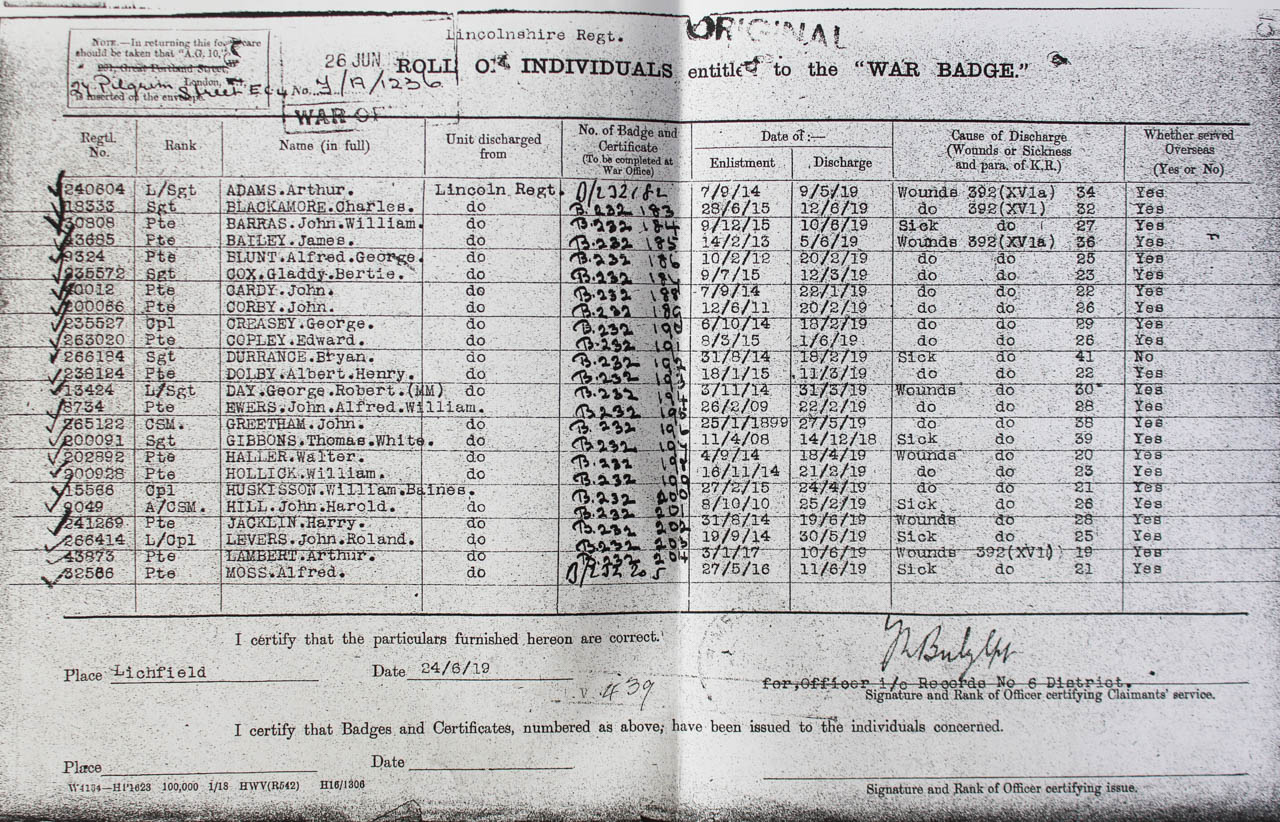 Lincolnshire Regt.
ORIGINAL
NOTE.—In returning this form care
should be taken that "A.G. 10,"
Great Portland Street,
London,
27 Pilgrim Street EC4
is inserted on the envelope.
26 JUN
No. J/A/1236
WAR OF
ROLL OF INDIVIDUALS entitled to the "WAR BADGE."
Regtl. No. Rank Name (in full) Unit discharged from No. of Badge and Certificate (To be completed at War Office) Date of :— Enlistment Discharge Cause of Discharge (Wounds or Sickness and para. of K.R.) Whether served Overseas (Yes or No)
240604 L/Sgt ADAMS.Arthur. Lincoln Regt. B/232182 7/9/14 9/5/19 Wounds 392(XV1a) 34 Yes
18333 Sgt BLACKAMORE.Charles. do B.232 183 28/6/15 12/6/19 do 392(XV1) 32 Yes
30808 Pte BARRAS.John.William. do B.232 184 9/12/15 10/6/19 Sick do 27 Yes
43695 Pte BAILEY.James. do B.232 185 14/2/13 5/6/19 Wounds 392(XV1a) 36 Yes
9324 Pte BLUNT.Alfred.George. do B.232 186 10/2/12 20/2/19 do do 25 Yes
235572 Sgt COX.Gladdy.Bertie. do B.232 9/7/15 12/3/19 do do 23 Yes
40012 Pte CARDY.John. do B.232 188 7/9/14 22/1/19 do do 22 Yes
200066 Pte CORBY.John. do B.232 189 12/6/11 20/2/19 do do 26 Yes
235527 Cpl CREASEY.George. do B.232 190 6/10/14 18/2/19 do do 29 Yes
263020 Pte COPLEY.Edward. do B.232 191 8/3/15 1/6/19 do do 26 Yes
266184 Sgt DURRANCE.Bryan. do B.232 192 31/8/14 18/2/19 Sick do 41 No
238124 Pte DOLBY.Albert.Henry. do B.232 193 18/1/15 11/3/19 do do 22 Yes
13424 L/Sgt DAY.George.Robert.(MM) do B.232 194 3/11/14 31/3/19 Wounds do 30 Yes
8734 Pte EWERS.John.Alfred.William. B.232 195 26/2/09 22/2/19 do do 28 Yes
265122 CSM. GREETHAM.John. do B.232 196 25/1/1899 27/5/19 do do 38 Yes
200091 Sgt GIBBONS.Thomas.White. do B.232 197 11/4/08 14/12/18 Sick do 39 Yes
202892 Pte HALLER.Walter. do B.232 198 4/9/14 18/4/19 Wounds do 20 Yes
200928 Pte HOLLICK.William. do B.232 199 16/11/14 21/2/19 do do 23 Yes
15566 Cpl HUSKISSON.William.Baines. B.232 200 27/2/15 24/4/19 do do 21 Yes
9049 A/CSM. HILL.John.Harold. do B.232 201 8/10/10 25/2/19 Sick do 26 Yes
241269 Pte JACKLIN.Harry. do B.232 202 31/8/14 19/6/19 Wounds do 28 Yes
266414 L/Cpl LEVERS.John.Roland. do B.232 203 19/9/14 30/5/19 Sick do 25 Yes
43873 Pte LAMBERT.Arthur. do B.232 204 3/1/17 10/6/19 Wounds 392(XV1) 19 Yes
32566 Pte MOSS.Alfred. do B/232 205 27/5/16 11/6/19 Sick do 21 Yes
I certify that the particulars furnished hereon are correct.
Place Lichfield Date 24/6/19
439
for,Officer i/c Records No 6 District.
Signature and Rank of Officer certifying Claimants' service.
I certify that Badges and Certificates, numbered as above, have been issued to the individuals concerned.
Place Date
100,000 1/18 HWV(R542) H16/1306
Signature and Rank of Officer certifying issue.